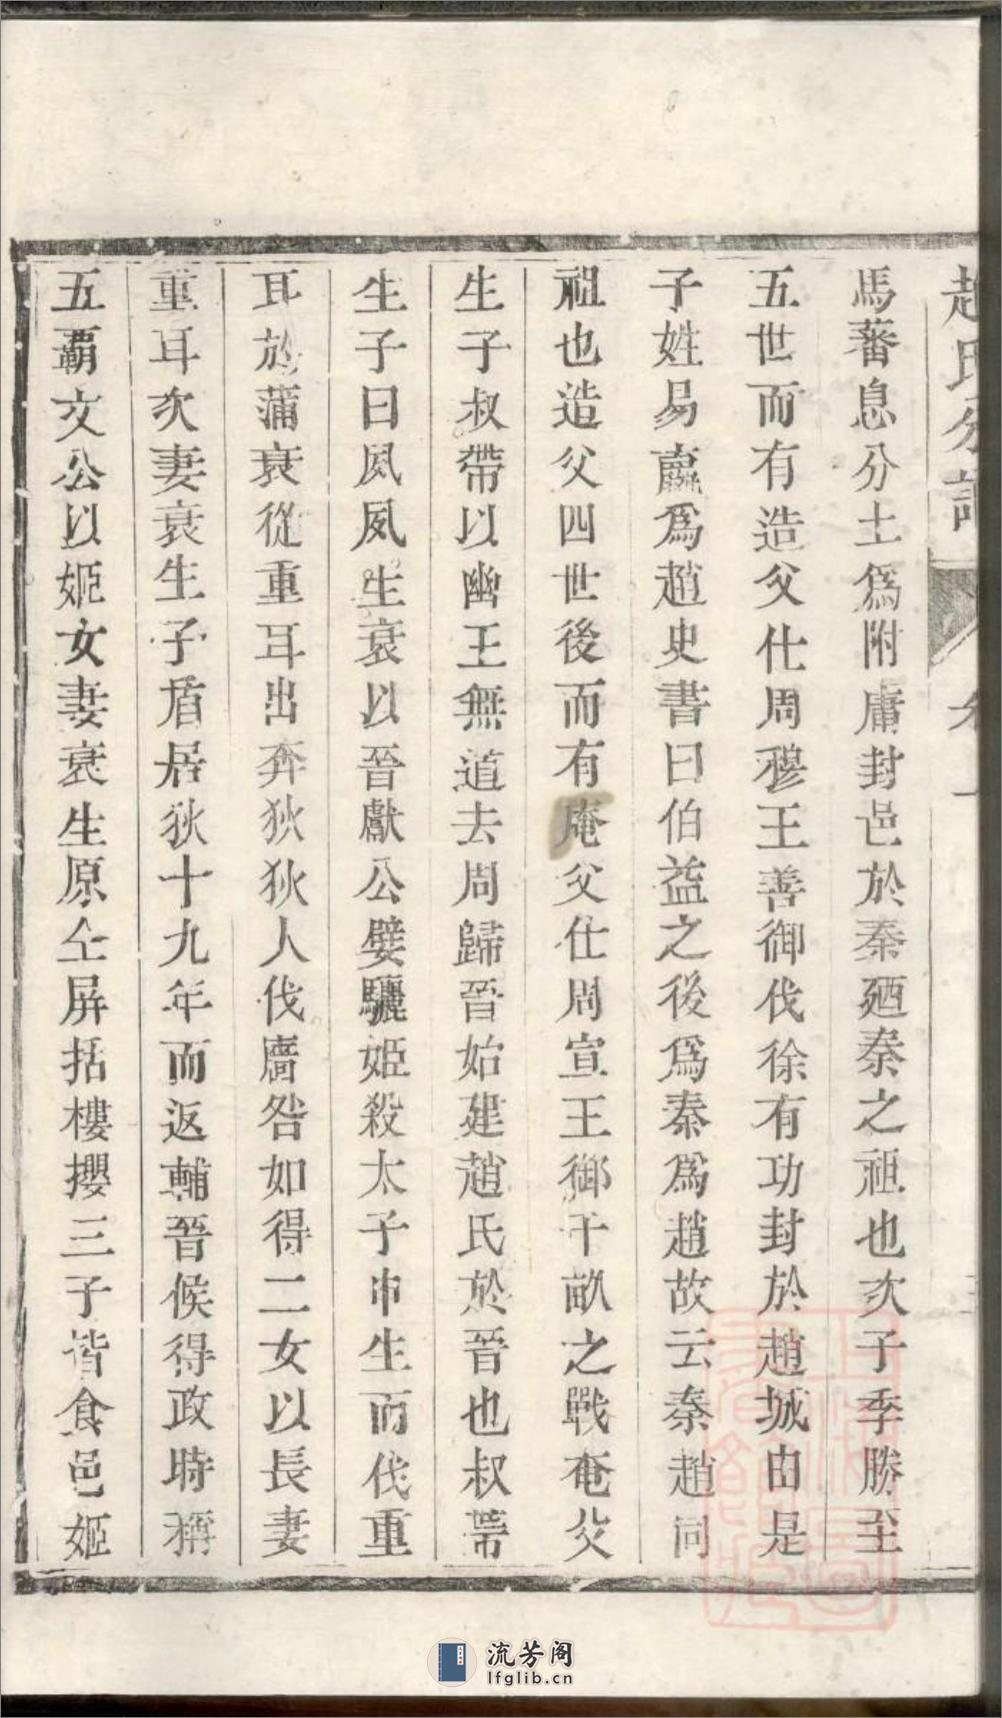 趙氏分譜 卷一
馬蕃息分土爲附庸封邑於秦廼秦之祖也次子季勝至
五世而有造父仕周穆王善御伐徐有功封於趙城由是
子姓易嬴爲趙史書曰伯益之後爲秦爲趙故云秦趙同
祖也造父四世後而有庵父仕周宣王御千畝之戰奄父
生子叔帶以幽王無道去周歸晉始建趙氏於晉也叔帶
生子曰夙夙生衰以晉獻公嬖驪姬殺太子申生而伐重
耳於蒲衰從重耳出奔狄狄人伐廧咎如得二女以長妻
重耳次妻衰生子盾居狄十九年而返輔晉侯得政時稱
五覇文公以姬女妻衰生原仝屏括樓攖三子皆食邑姬
流芳阁
lfglib.cn